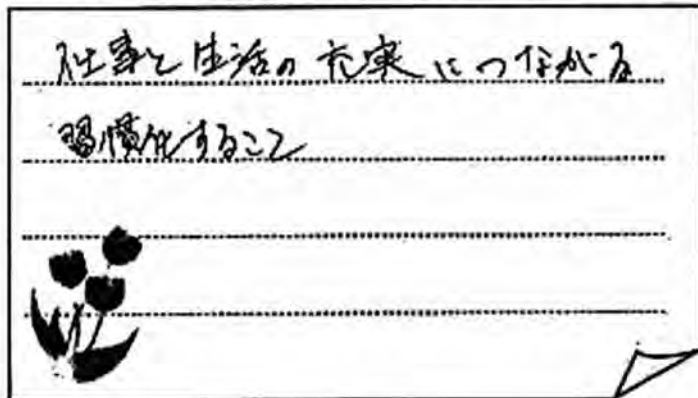 仕事と生活の充実につながる
習慣化すること